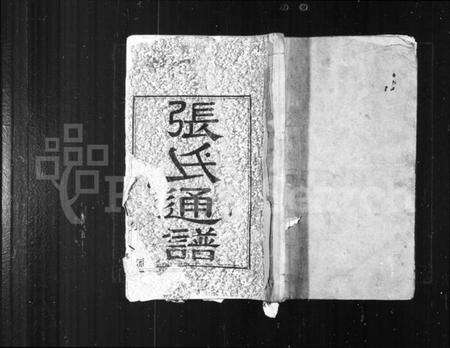 張氏通譜